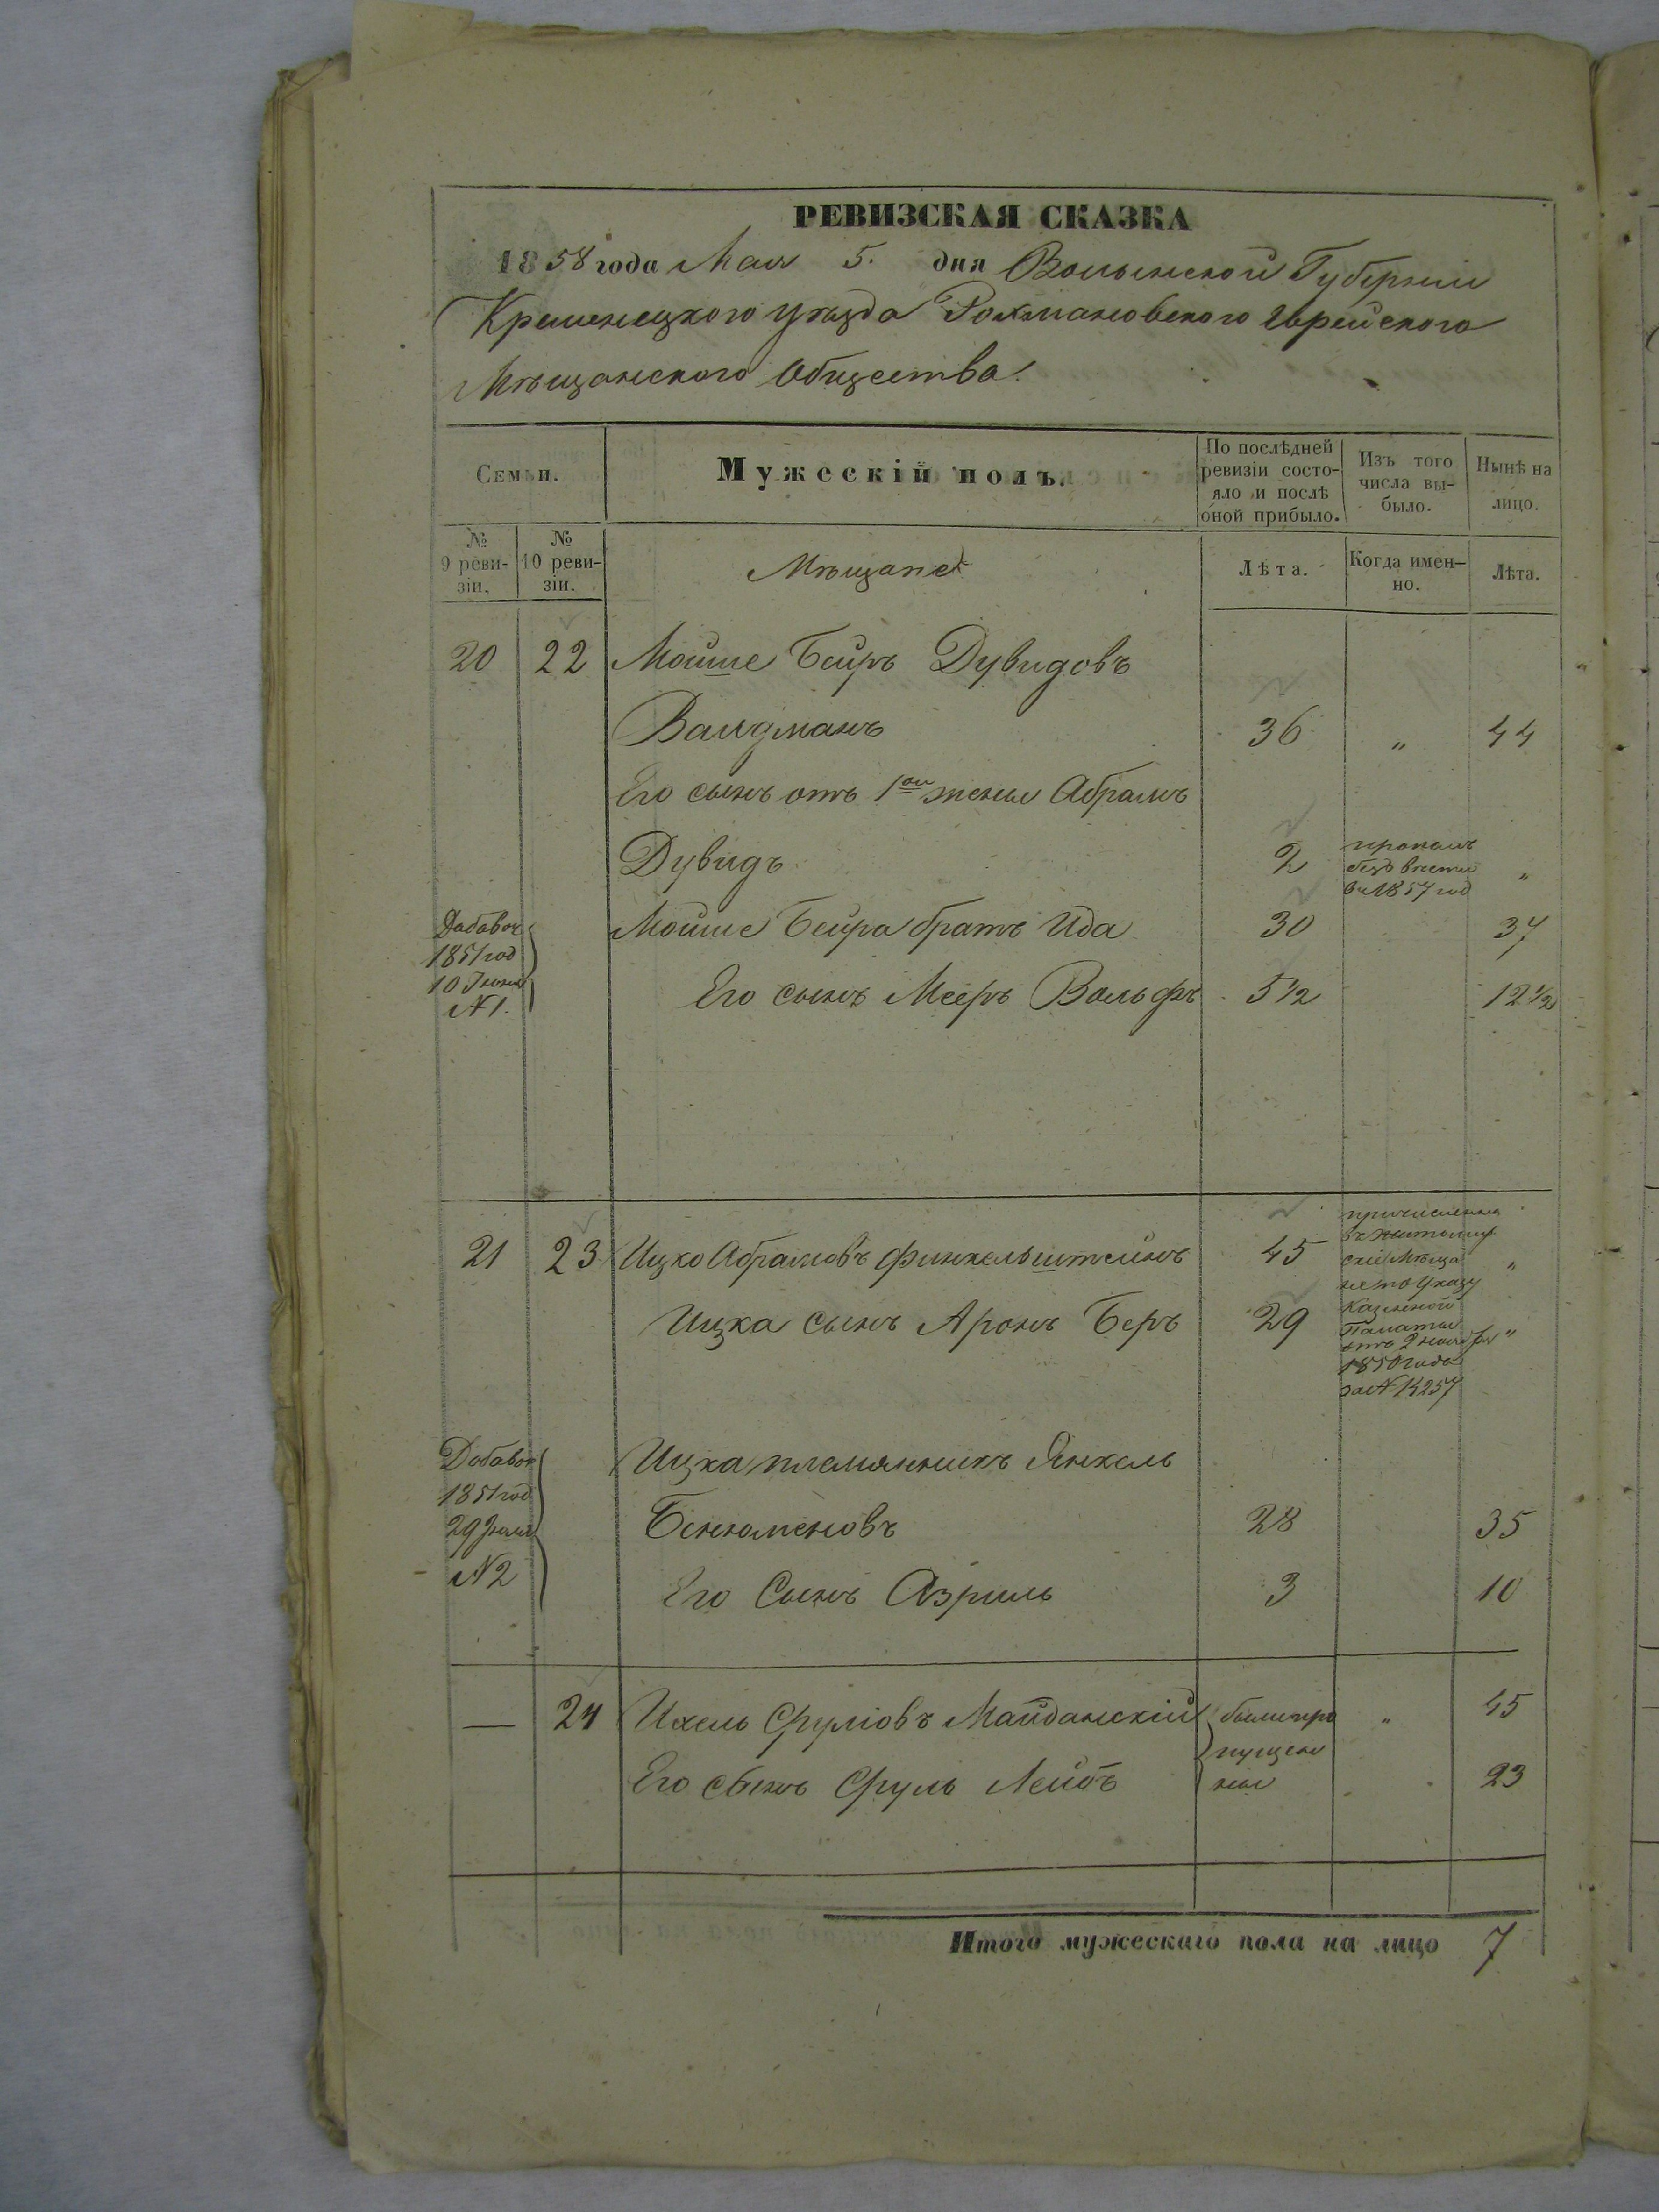 РЕВИЗСКАЯ СКАЗКА
1858 года Мая 5. дня Волынской Губерніи
Кременецкого уѣзда Рохмановского Еврейского
Мѣщанского Общества.
Семьи.
Мужескій полъ.
По послѣдней ревизіи состояло и послѣ оной прибыло.
Изъ того числа выбыло.
Нынѣ на лицо.
№ 9 ревизіи.
№ 10 ревизіи.
Мѣщане
Лѣта.
Когда именно.
Лѣта.
20 22 Мойше Бейръ Дувидовъ
Валдманъ 36 " 44
Его сынъ отъ 1ой жены Абрамъ
Дувидъ 2 пропалъ
безъ вести
въ 1857 год "
Добавоч
1851 год
10 Июня
№ 1.
Мойше Бейра братъ Ида 30 37
Его сынъ Мееръ Вольфъ 5 1/2 12 1/2
21 23 Ицко Абрамовъ Финкельштейнъ 45 "
Ицка сынъ Аронъ Беръ 29 "
причислены
въ Житомир
скіе Мѣща
не по Указу
Казенной
Палаты
отъ 2 ноября
1850 года
за № 14257
Добавоч
1851 год
29 Июля
№ 2
Ицка племянникъ Янкель
Бенюменовъ 28 35
Его Сынъ Азриль 3 10
— 24 Ихель Срулювъ Майданскій " 45
Его сынъ Сруль Лейбъ 23
были про
пущен
ные
Итого мужескаго пола на лицо 7